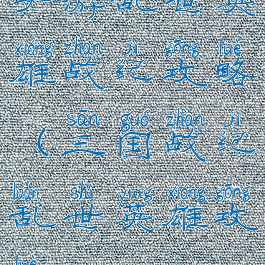 手游乱世英
xióng zhàn jì gōng lüè
雄战纪攻略
sān guó zhàn jì
(三国战纪
luàn shì yīng xióng gōng
乱世英雄攻
lüè